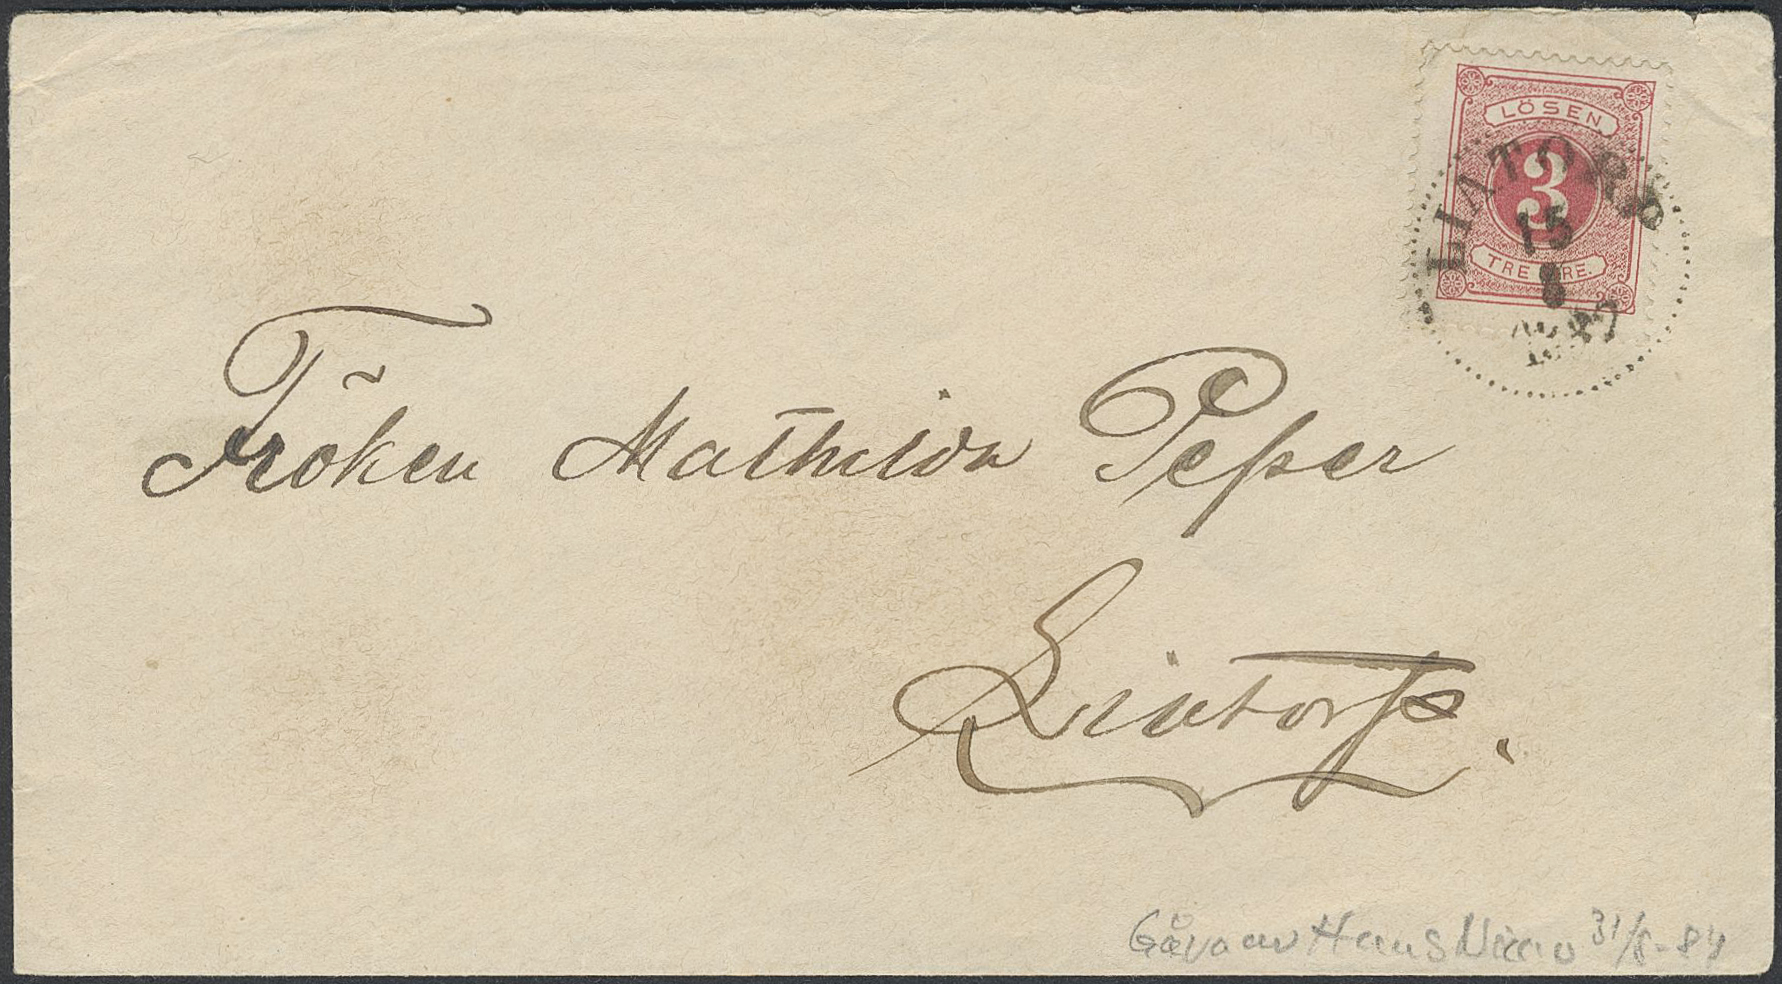 LÖSEN
3
TRE ÖRE.
LIATORP
15
8
Fröken Mathilda Peſser
Liatorp.
Gåva av Hans 31/8-84